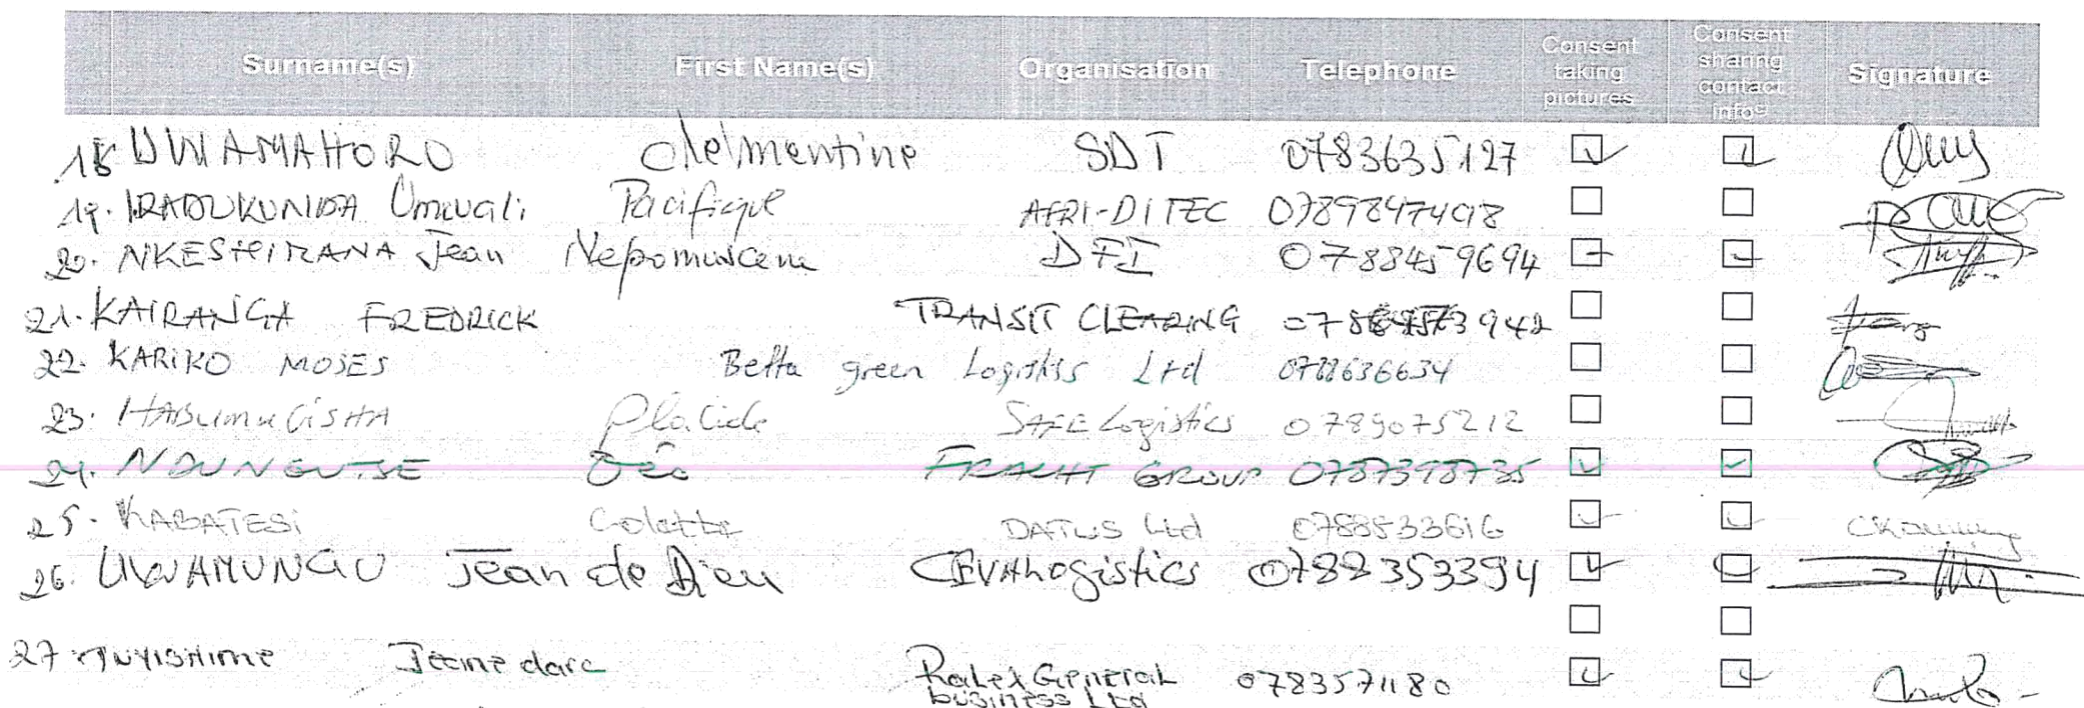 Surname(s) First Name(s) Organisation Telephone Consent taking pictures Consent sharing contact infos Signature
18 UWAMAHORO Clelmentine SDT 0783635127
19. IRADUKUNDA Umwali Pacifique AFRI-DITEC 0789897498
20. NKESHIMANA Jean Nepomuscene DFI 0788459694
21. KAIRANGA FREDRICK TRANSIT CLEARING
22. KARIKO MOSES Betta green Logistics Ltd 0788636634
23. HABumuGisHA Placide SAFE Logistics 0789075212
24. NDUNGUTSE Déo FRACHT GROUP 0787398735
25. KABATESi Colette DATUS Ltd 0788533616
26. UWAMUNGU Jean de Dieu CEVA Logistics 0788353394
27 TUYISHIME Jeanne darc Ralex General 0783571180
business Ltd